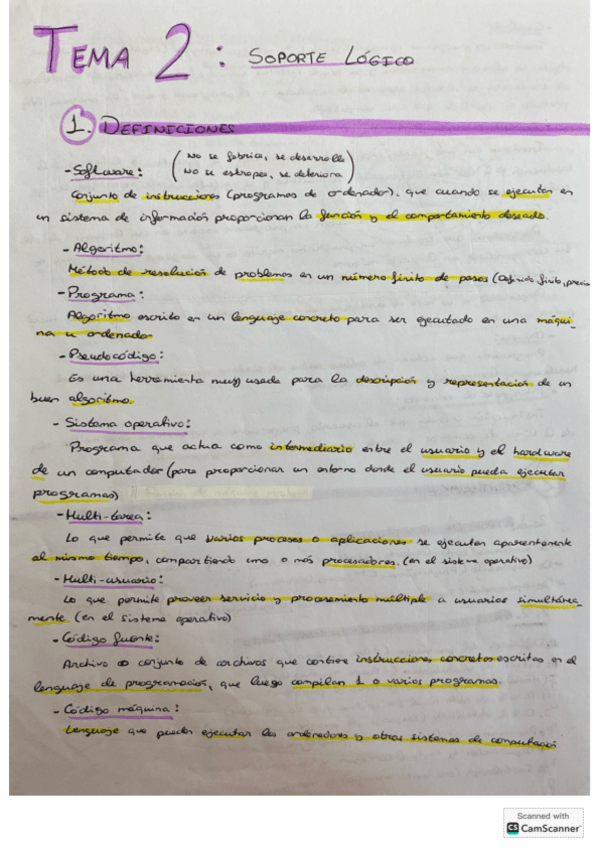 TEMA 2: SOPORTE LÓGICO
1. DEFINICIONES
- Software: (No se fabrica, se desarrolla
No se estropea, se deteriora)
Conjunto de instrucciones (programas de ordenador), que cuando se ejecutan en
un sistema de información proporcionan la función y el comportamiento deseado.
- Algoritmo:
Método de resolución de problemas en un número finito de pasos (definido, finito, preciso
- Programa:
Algoritmo escrito en un lenguaje concreto para ser ejecutado en una máqui-
na u ordenador
- Pseudocódigo:
Es una herramienta muy usada para la descripción y representación de un
buen algoritmo.
- Sistema operativo:
Programa que actua como intermediario entre el usuario y el hardware
de un computador (para proporcionar un entorno donde el usuario pueda ejecutar
programas)
- Multi-tarea:
Lo que permite que varios procesos o aplicaciones se ejecuten aparentemente
al mismo tiempo, compartiendo uno o más procesadores. (en el sistema operativo)
- Multi-usuario:
Lo que permite proveer servicio y procesamiento múltiple a usuarios simultánea-
mente (en el sistema operativo)
- Código fuente:
Archivo o conjunto de archivos que contiene instrucciones concretas escritas en el
lenguaje de programación, que luego compilan 1 o varios programas.
- Código máquina:
Lenguaje que pueden ejecutar los ordenadores y otros sistemas de computación
Scanned with
CS CamScanner